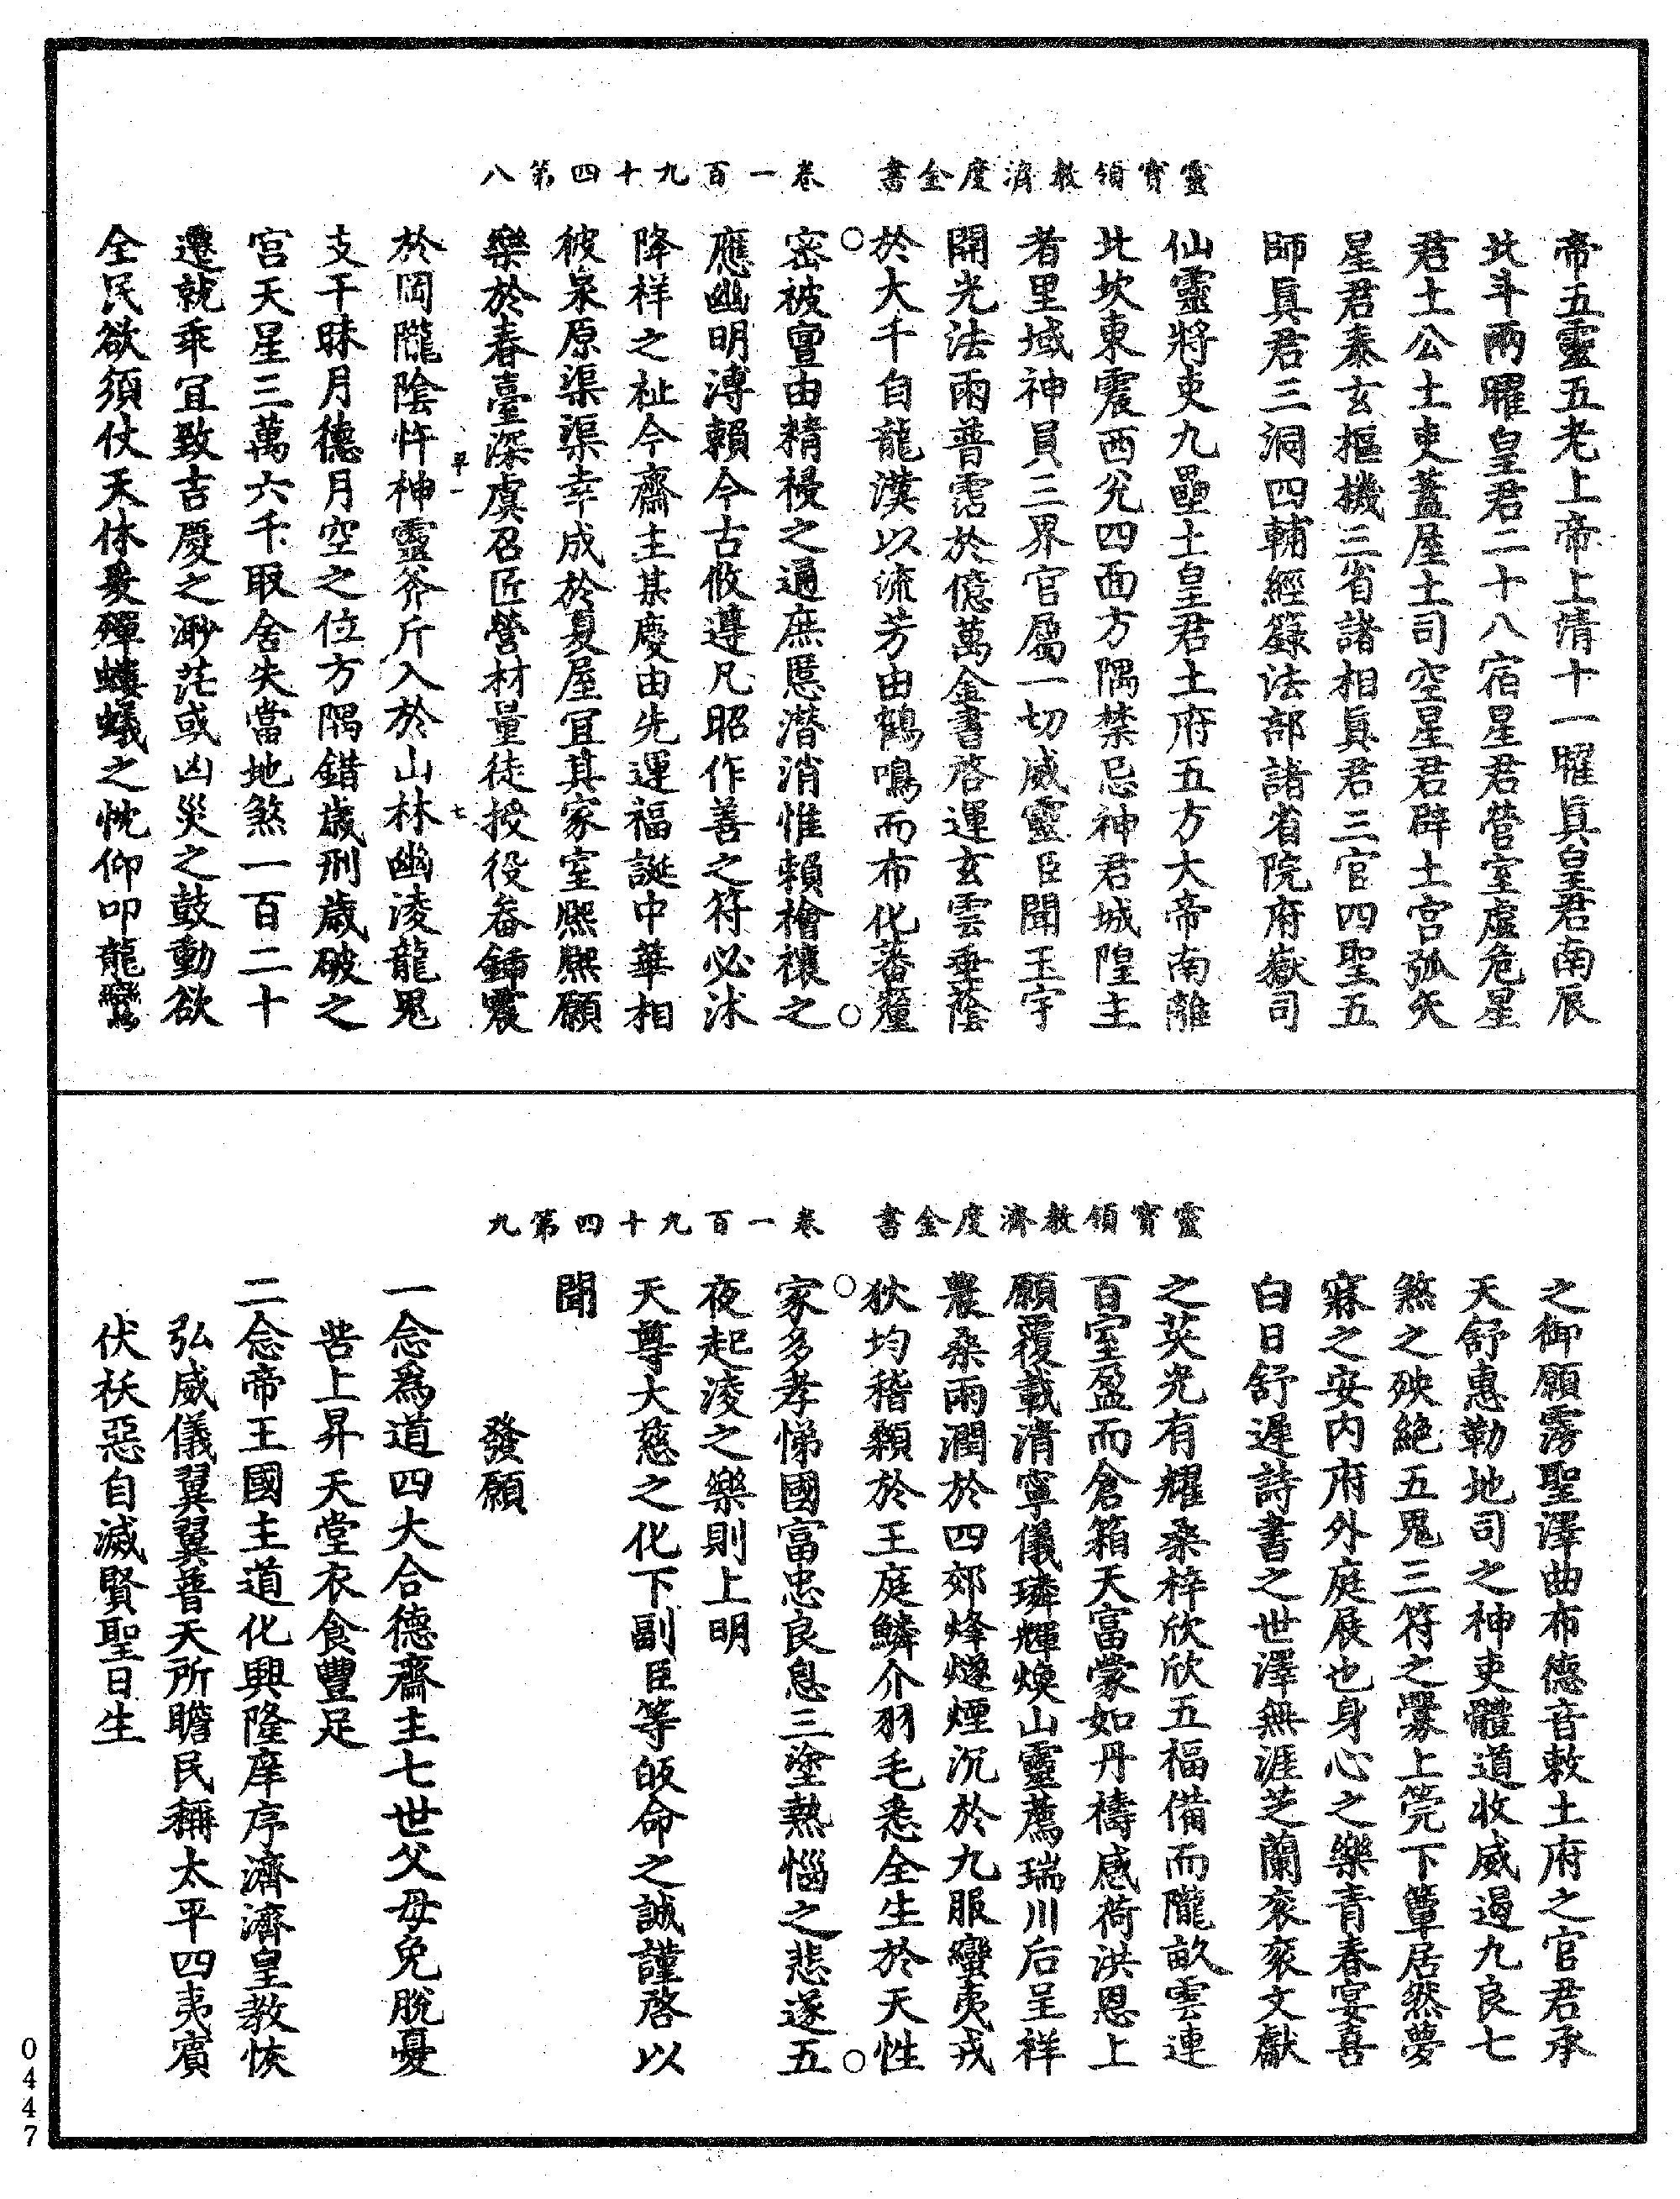 靈寶領教濟度金書　卷一百九十四第八
帝五靈五老上帝上清十一曜眞皇君南辰
北斗兩曜皇君二十八宿星君營室虛危星
君土公土吏蓋屋土司空星君辟土宫弧矢
星君泰玄樞機三省諸相眞君三官四聖五
師眞君三洞四輔經籙法部諸省院府嶽司
仙靈將吏九壘土皇君土府五方大帝南離
北坎東震西兌四面方隅禁忌神君城隍主
者里域神員三界官屬一切威靈臣聞玉宇
開光法雨普霑於億萬金書啓運玄雲垂蔭
於大千自龍漢以流芳由鶴鳴而布化蕃釐
密被亶由精祲之通庶慝潛消惟賴禬禳之
應幽明溥賴今古攸遵凡昭作善之符必沭
降祥之祉今齋主某慶由先運福誕中華相
彼泉原渠渠幸成於夏屋宜其家室熙熙願
樂於春臺深虞召匠營材量徒授役畚鍤震
於岡隴陰忤神靈斧斤入於山林幽淩龍鬼
支干昧月德月空之位方隅錯歲刑歲破之
宮天星三萬六千取舍失當地煞一百二十
遷就乖宜致吉慶之渺茫或凶災之鼓動欲
全民欲須仗天休爰殫螻蟻之忱仰叩龍鸞
靈寶領教濟度金書　卷一百九十四第九
之御願霶聖澤曲布德音敕土府之官君承
天舒惠勒地司之神吏體道收威遏九良七
煞之殃絶五鬼三符之釁上筦下簟居然夢
寐之安内府外庭展也身心之樂青春宴喜
白日舒遲詩書之世澤無涯芝蘭衮衮文獻
之英光有耀桑梓欣欣五福備而隴畝雲連
百室盈而倉箱天富蒙如丹禱感荷洪恩上
願覆載清寧儀璘輝煥山靈薦瑞川后呈祥
農桑雨潤於四郊烽燧煙沉於九服蠻夷戎
狄均稽顙於王庭鱗介羽毛悉全生於天性
家多孝悌國富忠良息三塗熱惱之悲遂五
夜起淩之樂則上明
天尊大慈之化下副臣等皈命之誠謹啓以
聞
發願
一念爲道四大合德齋主七世父母免脫憂
苦上昇天堂衣食豐足
二念帝王國主道化興隆庠序濟濟皇教恢
弘威儀翼翼普天所瞻民稱太平四夷賓
伏袄惡自滅賢聖日生
0447